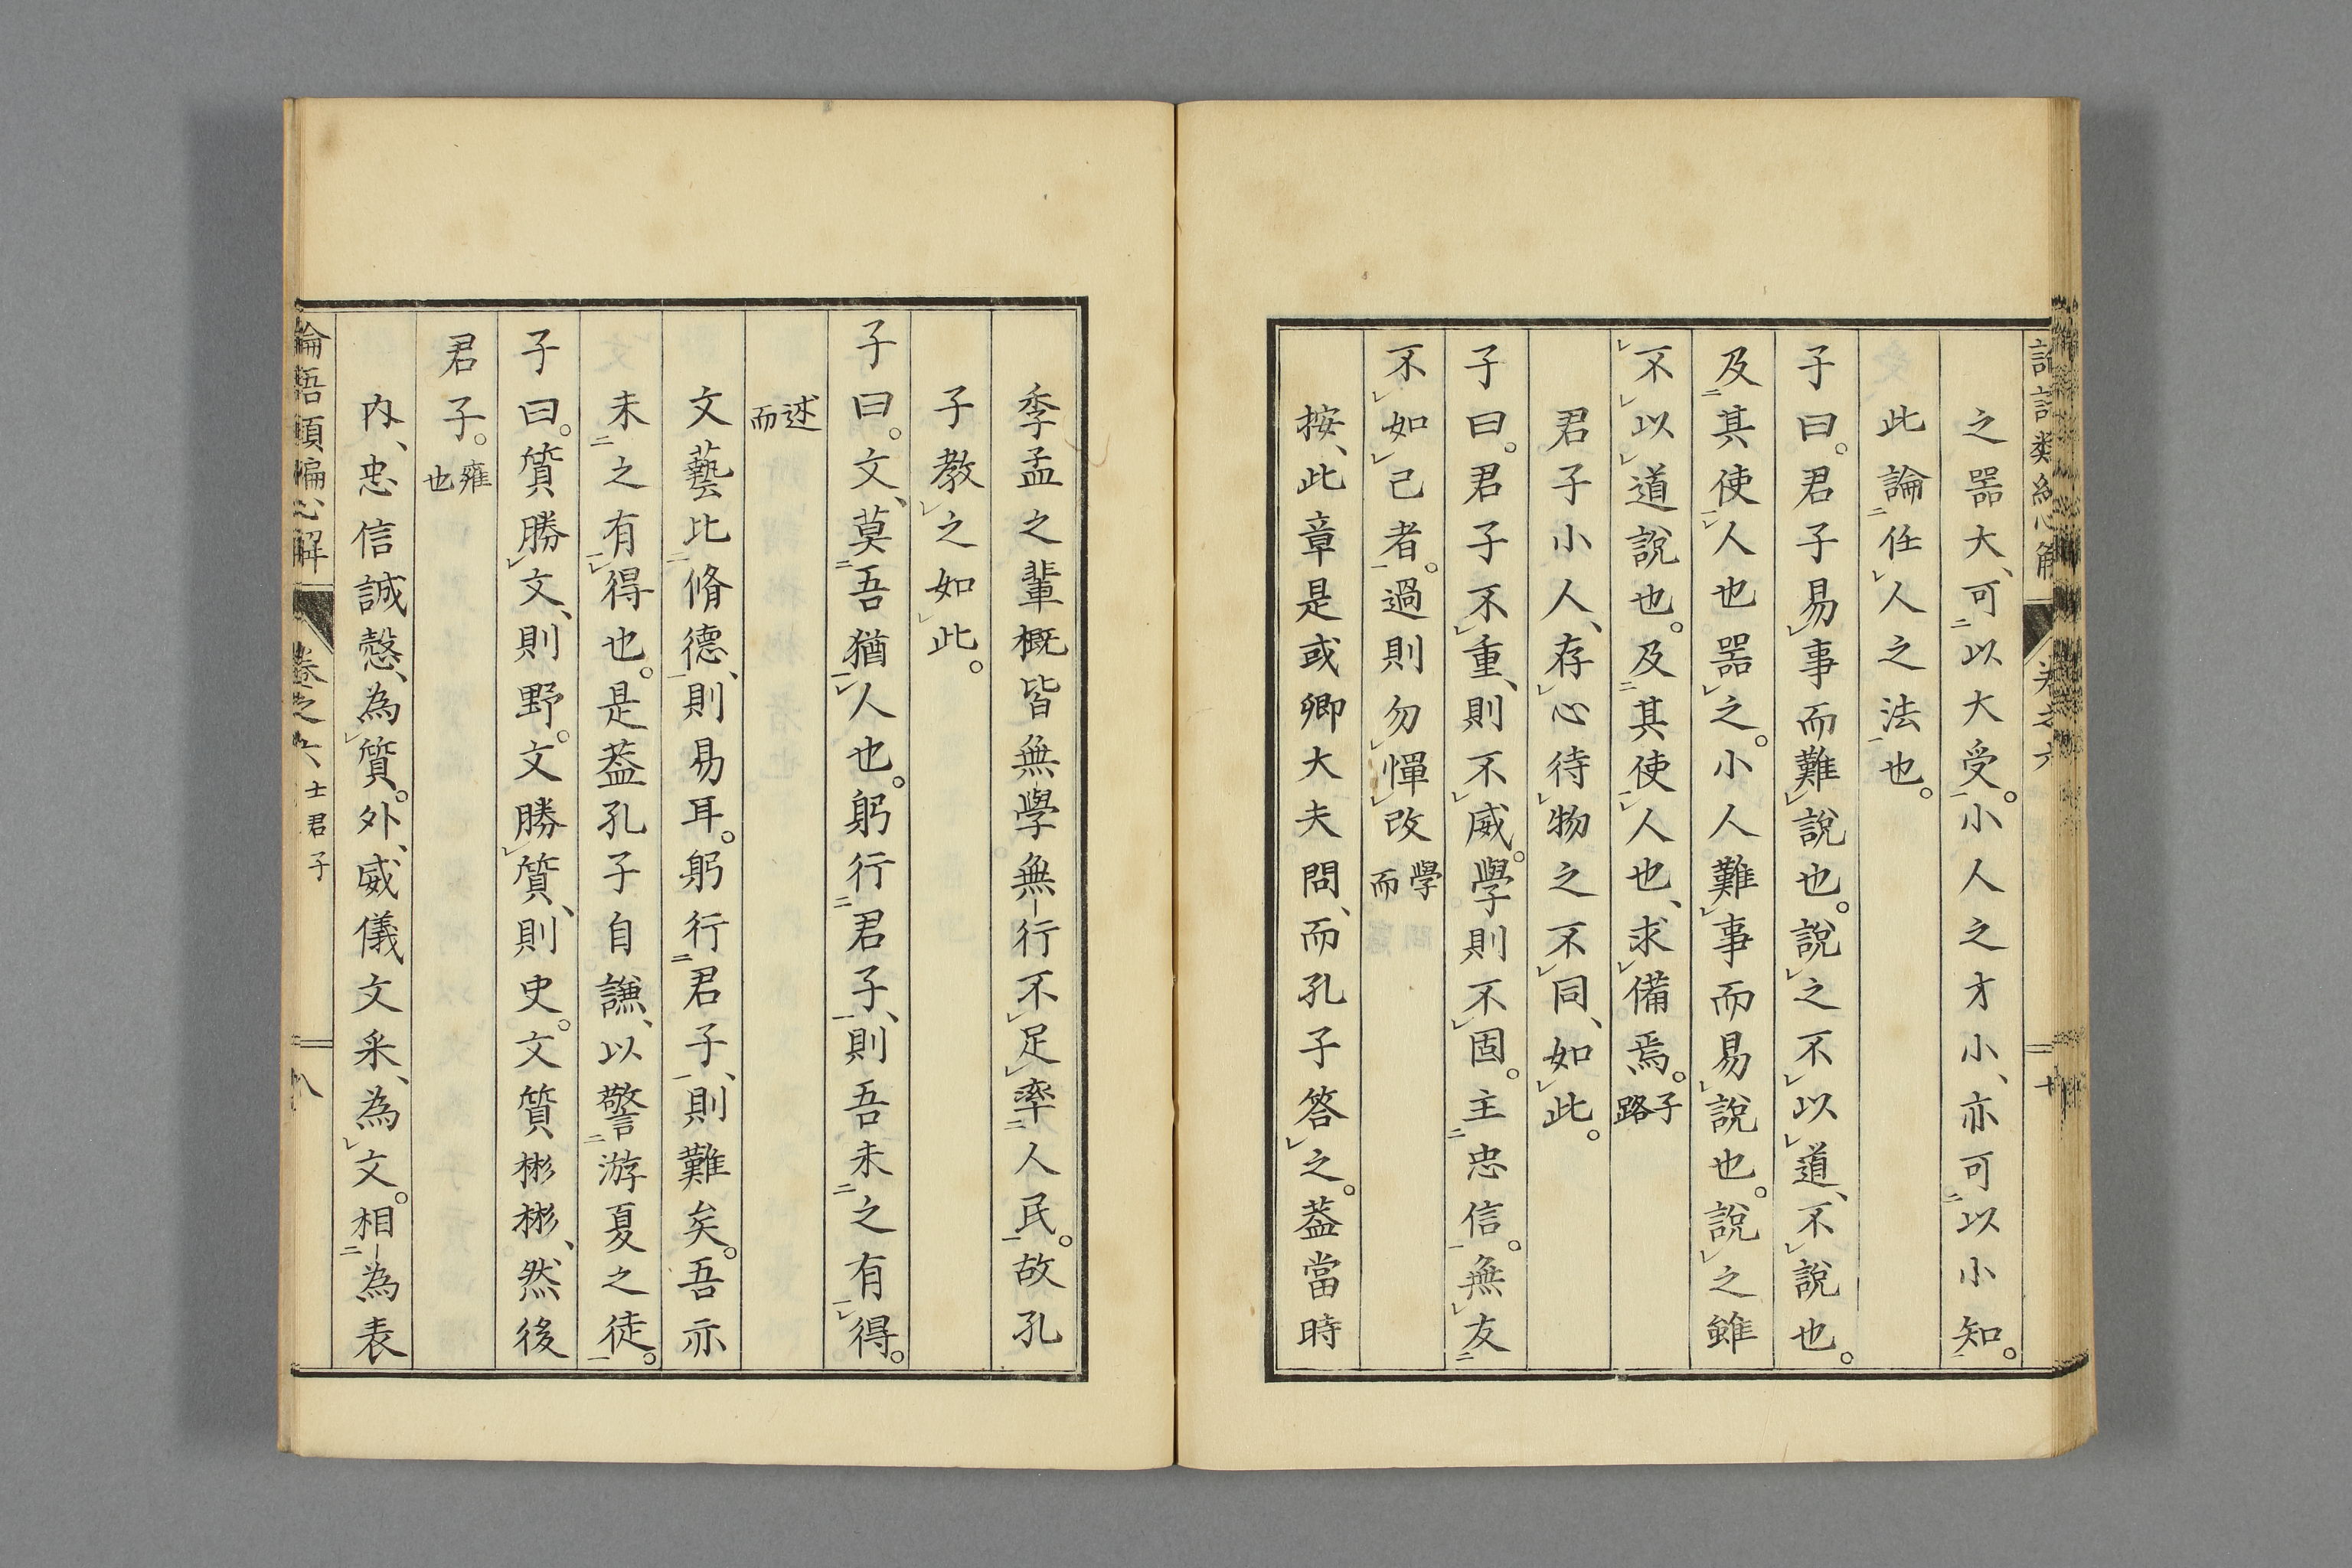 之器大、可以大受。小人之才小、亦可以小知。
此論任人之法也。
子曰。君子易事而難說也。說之不以道、不說也。
及其使人也器之。小人難事而易說也。說之雖
不以道說也。及其使人也、求備焉。子路
君子小人、存心待物之不同、如此。
子曰。君子不重、則不威。學則不固。主忠信。無友
不如己者。過則勿憚改學而
按、此章是或卿大夫問、而孔子答之。蓋當時
季孟之輩概皆無學無行不足率人民。故孔
子教之如此。
子曰。文、莫吾猶人也。躬行君子、則吾未之有得。
述而
文藝比脩德、則易耳。躬行君子、則難矣。吾亦
未之有得也。是蓋孔子自謙、以警游夏之徒。
子曰。質勝文、則野。文勝質、則史。文質彬彬、然後
君子。雍也
內、忠信誠愨、為質。外、威儀文采、為文。相為表
論語類編心解 卷之六 士君子 八